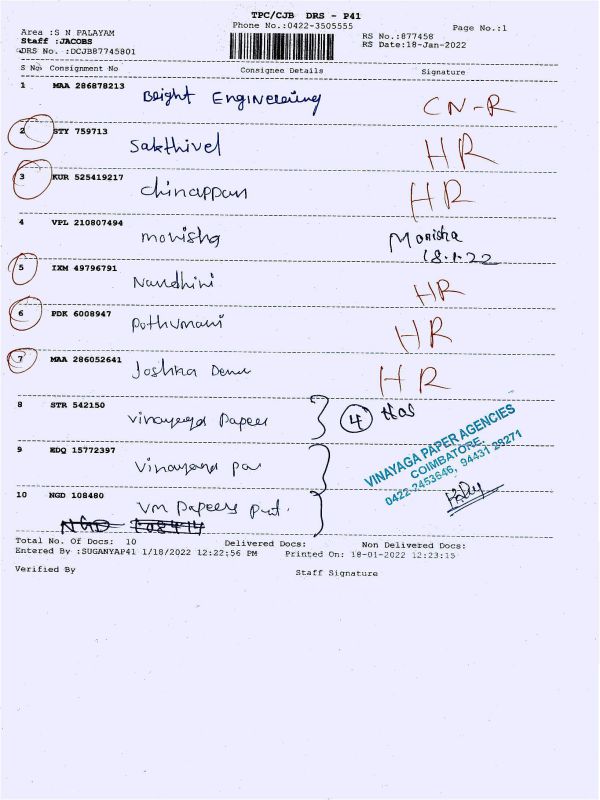 TPC/CJB DRS - P41
Area :S N PALAYAM Phone No.:0422-3505555 Page No.:1
Staff :JACOBS RS No.:877458
DRS No. :DCJB87745801 RS Date:18-Jan-2022
S No Consignment No Consignee Details Signature
1 MAA 286878213 Bright Engineering CN-R
2 STY 759713 Sakthivel HR
3 KUR 525419217 chinappan HR
4 VPL 210807494 monisha Monisha
18.1.22
5 IXM 49796791 Nandhini HR
6 PDK 6008947 Pothumani HR
7 MAA 286052641 Joshna HR
8 STR 542150 vinayaga Papers 4
9 EDQ 15772397 vinayaga
10 NGD 108480 vm Papers Pvt.
VINAYAGA PAPER AGENCIES
COIMBATORE.
0422-2453646, 94431 28271
NGD
Total No. Of Docs: 10 Delivered Docs: Non Delivered Docs:
Entered By :SUGANYAP41 1/18/2022 12:22:56 PM Printed On: 18-01-2022 12:23:15
Verified By Staff Signature